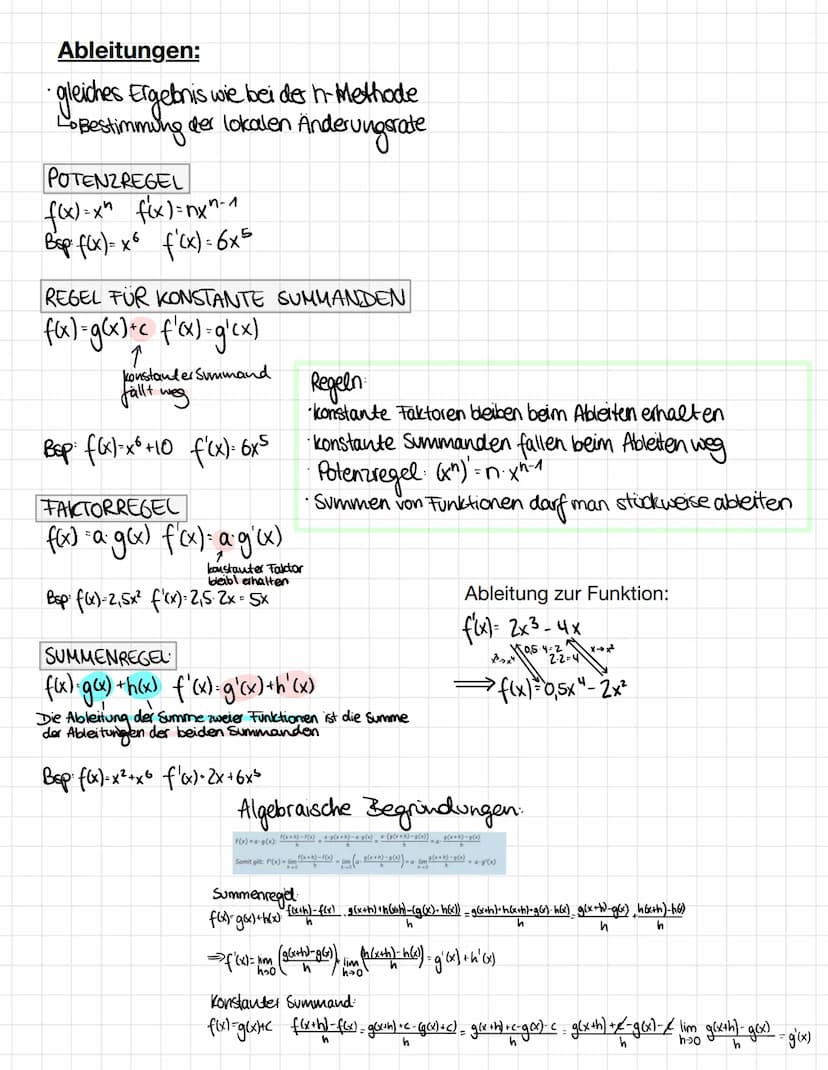 Ableitungen:
· gleiches Ergebnis wie bei der h-Methode
↳ Bestimmung der lokalen Änderungsrate
POTENZREGEL
f(x)=xⁿ f'(x)=nxⁿ⁻¹
Bsp: f(x)=x⁶ f'(x)=6x⁵
REGEL FÜR KONSTANTE SUMMANDEN
f(x)=g(x)+c f'(x)=g'(x)
↑
konstanter Summand
fällt weg
Bsp: f(x)=x⁶+10 f'(x)=6x⁵
Regeln:
· konstante Faktoren bleiben beim Ableiten erhalten
· konstante Summanden fallen beim Ableiten weg
· Potenzregel: (xⁿ)'=n·xⁿ⁻¹
· Summen von Funktionen darf man stückweise ableiten
FAKTORREGEL
f(x)=a·g(x) f'(x)=a·g'(x)
↑
konstanter Faktor
bleibt erhalten
Bsp: f(x)=2,5x² f'(x)=2,5·2x=5x
Ableitung zur Funktion:
f'(x)=2x³-4x
x³→x⁴ 0,5·4=2 2·2=4 x→x²
⇒ f(x)=0,5x⁴-2x²
SUMMENREGEL:
f(x)=g(x)+h(x) f'(x)=g'(x)+h'(x)
Die Ableitung der Summe zweier Funktionen ist die Summe
der Ableitungen der beiden Summanden
Bsp: f(x)=x²+x⁶ f'(x)=2x+6x⁵
Algebraische Begründungen:
f(x)=a·g(x): (f(x+h)-f(x))/h = (a·g(x+h)-a·g(x))/h = (a·(g(x+h)-g(x)))/h = a·(g(x+h)-g(x))/h
Somit gilt: f'(x)= lim h→0 (f(x+h)-f(x))/h = lim h→0 (a·(g(x+h)-g(x))/h) = a·lim h→0 (g(x+h)-g(x))/h = a·g'(x)
Summenregel:
f(x)=g(x)+h(x) (f(x+h)-f(x))/h = (g(x+h)+h(x+h)-(g(x)+h(x)))/h = (g(x+h)+h(x+h)-g(x)-h(x))/h = (g(x+h)-g(x))/h + (h(x+h)-h(x))/h
⇒ f'(x)= lim h→0 ((g(x+h)-g(x))/h) + lim h→0 ((h(x+h)-h(x))/h) = g'(x)+h'(x)
Konstanter Summand:
f(x)=g(x)+c (f(x+h)-f(x))/h = (g(x+h)+c-(g(x)+c))/h = (g(x+h)+c-g(x)-c)/h = (g(x+h)+c-g(x)-c)/h lim h→0 (g(x+h)-g(x))/h = g'(x)